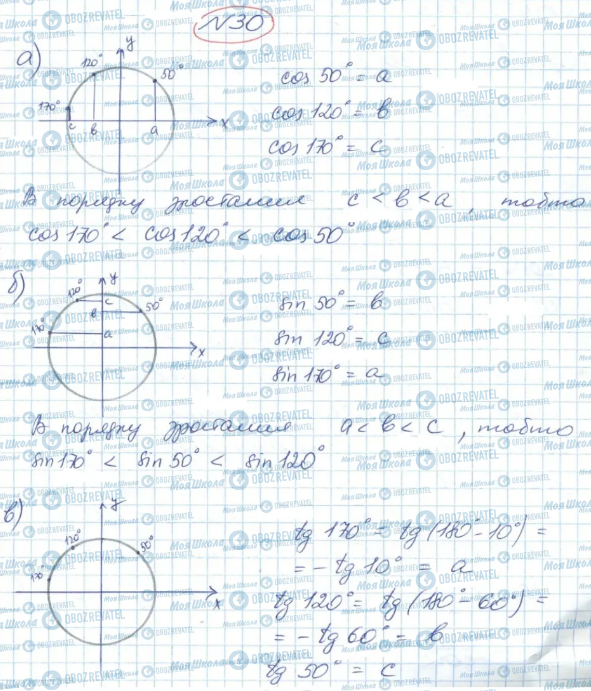 N30
а)
y
120°
50°
170°
c
b
a
x
cos 50° = a
cos 120° = b
cos 170° = c
В порядку зростання c < b < a, тобто
cos 170° < cos 120° < cos 50°
б)
y
120°
c
50°
b
170°
a
x
sin 50° = b
sin 120° = c
sin 170° = a
В порядку зростання a < b < c, тобто
sin 170° < sin 50° < sin 120°
в)
y
120°
50°
170°
x
tg 170° = tg (180° - 10°) =
= - tg 10° = a
tg 120° = tg (180° - 60°) =
= - tg 60° = b
tg 50° = c
Моя Школа
OBOZREVATEL